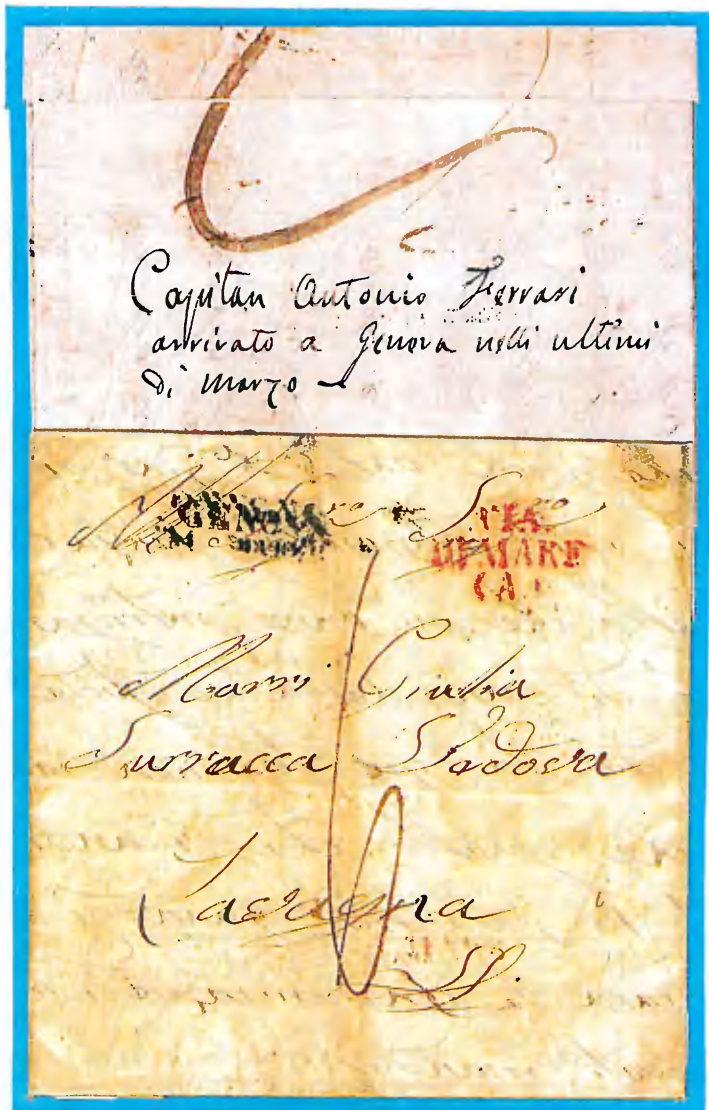 Capitan Antonio Ferrari
arrivato a Genova nelli ultimi
di marzo
GENOVA
VIA
DI MARE
(A)
Giulia
Surracca Vedova
Lavagna